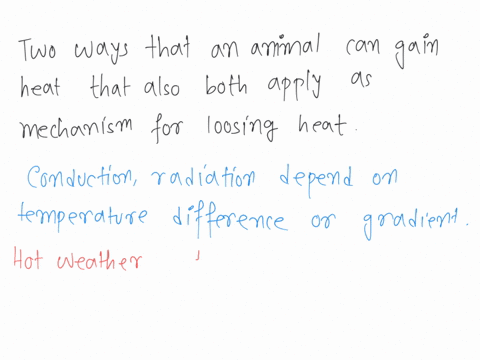 Two ways that an animal can gain
heat that also both apply as
mechanism for loosing heat.
Conduction, radiation depend on
temperature difference or gradient.
Hot weather